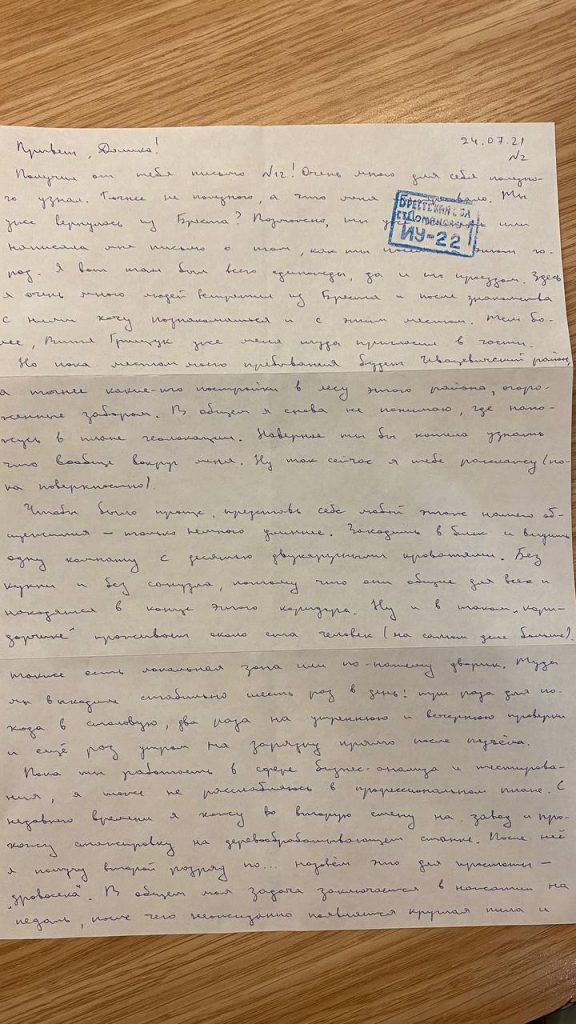 Привет, Димка!
24.07.21
№2
Получил от тебя письмо №12! Очень много для себя полезно-
го узнал. Точнее не полезного, а что меня Ты
уже вернулась из Бреста? Возможно, ты уже или
написала мне письмо о том, как ты этот го-
род. Я вот там был всего единожды, да и то проездом. Здесь
я очень много людей встретил из Бреста и после знакомства
с ними хочу познакомиться и с этим местом. Тем бо-
лее, Витя Грищук уже меня туда пригласил в гости.
БРЕСТСКАЯ ОБЛ
ст. Доманово
ИУ-22
Но пока местом моего пребывания будет Ивацевичский район,
а точнее какие-то постройки в лесу этого района, огоро-
женные забором. В общем я снова не понимаю, где нахо-
жусь в плане геолокации. Наверное ты бы хотела узнать
что вообще вокруг меня. Ну так сейчас я тебе расскажу (по-
ка поверхностно).
Чтобы было проще, представь себе любой этаж нашего об-
щежития – только немного длиннее. Заходишь в блок и видишь
одну комнату с десятью двухъярусными кроватями. Без
кухни и без санузла, потому что они общие для всех и
находятся в конце этого коридора. Ну и в таком „кори-
дорчике“ проживает около ста человек (на самом деле больше).
также есть локальная зона или по-нашему дворик. Туда
мы выходим стабильно шесть раз в день: три раза для по-
хода в столовую, два раза на утреннюю и вечернюю проверки
и ещё раз утром на зарядку прямо после подъёма.
Пока ты работаешь в сфере бизнес-анализа и тестирова-
ния, я тоже не расслабляюсь в профессиональном плане. С
недавнего времени я хожу во вторую смену на завод и про-
хожу стажировку на деревообрабатывающем станке. После неё
я получу второй разряд по... назовём это для простоты –
„дровосека“. В общем моя задача заключается в нажатии на
педаль, после чего неожиданно появляется круглая пила и